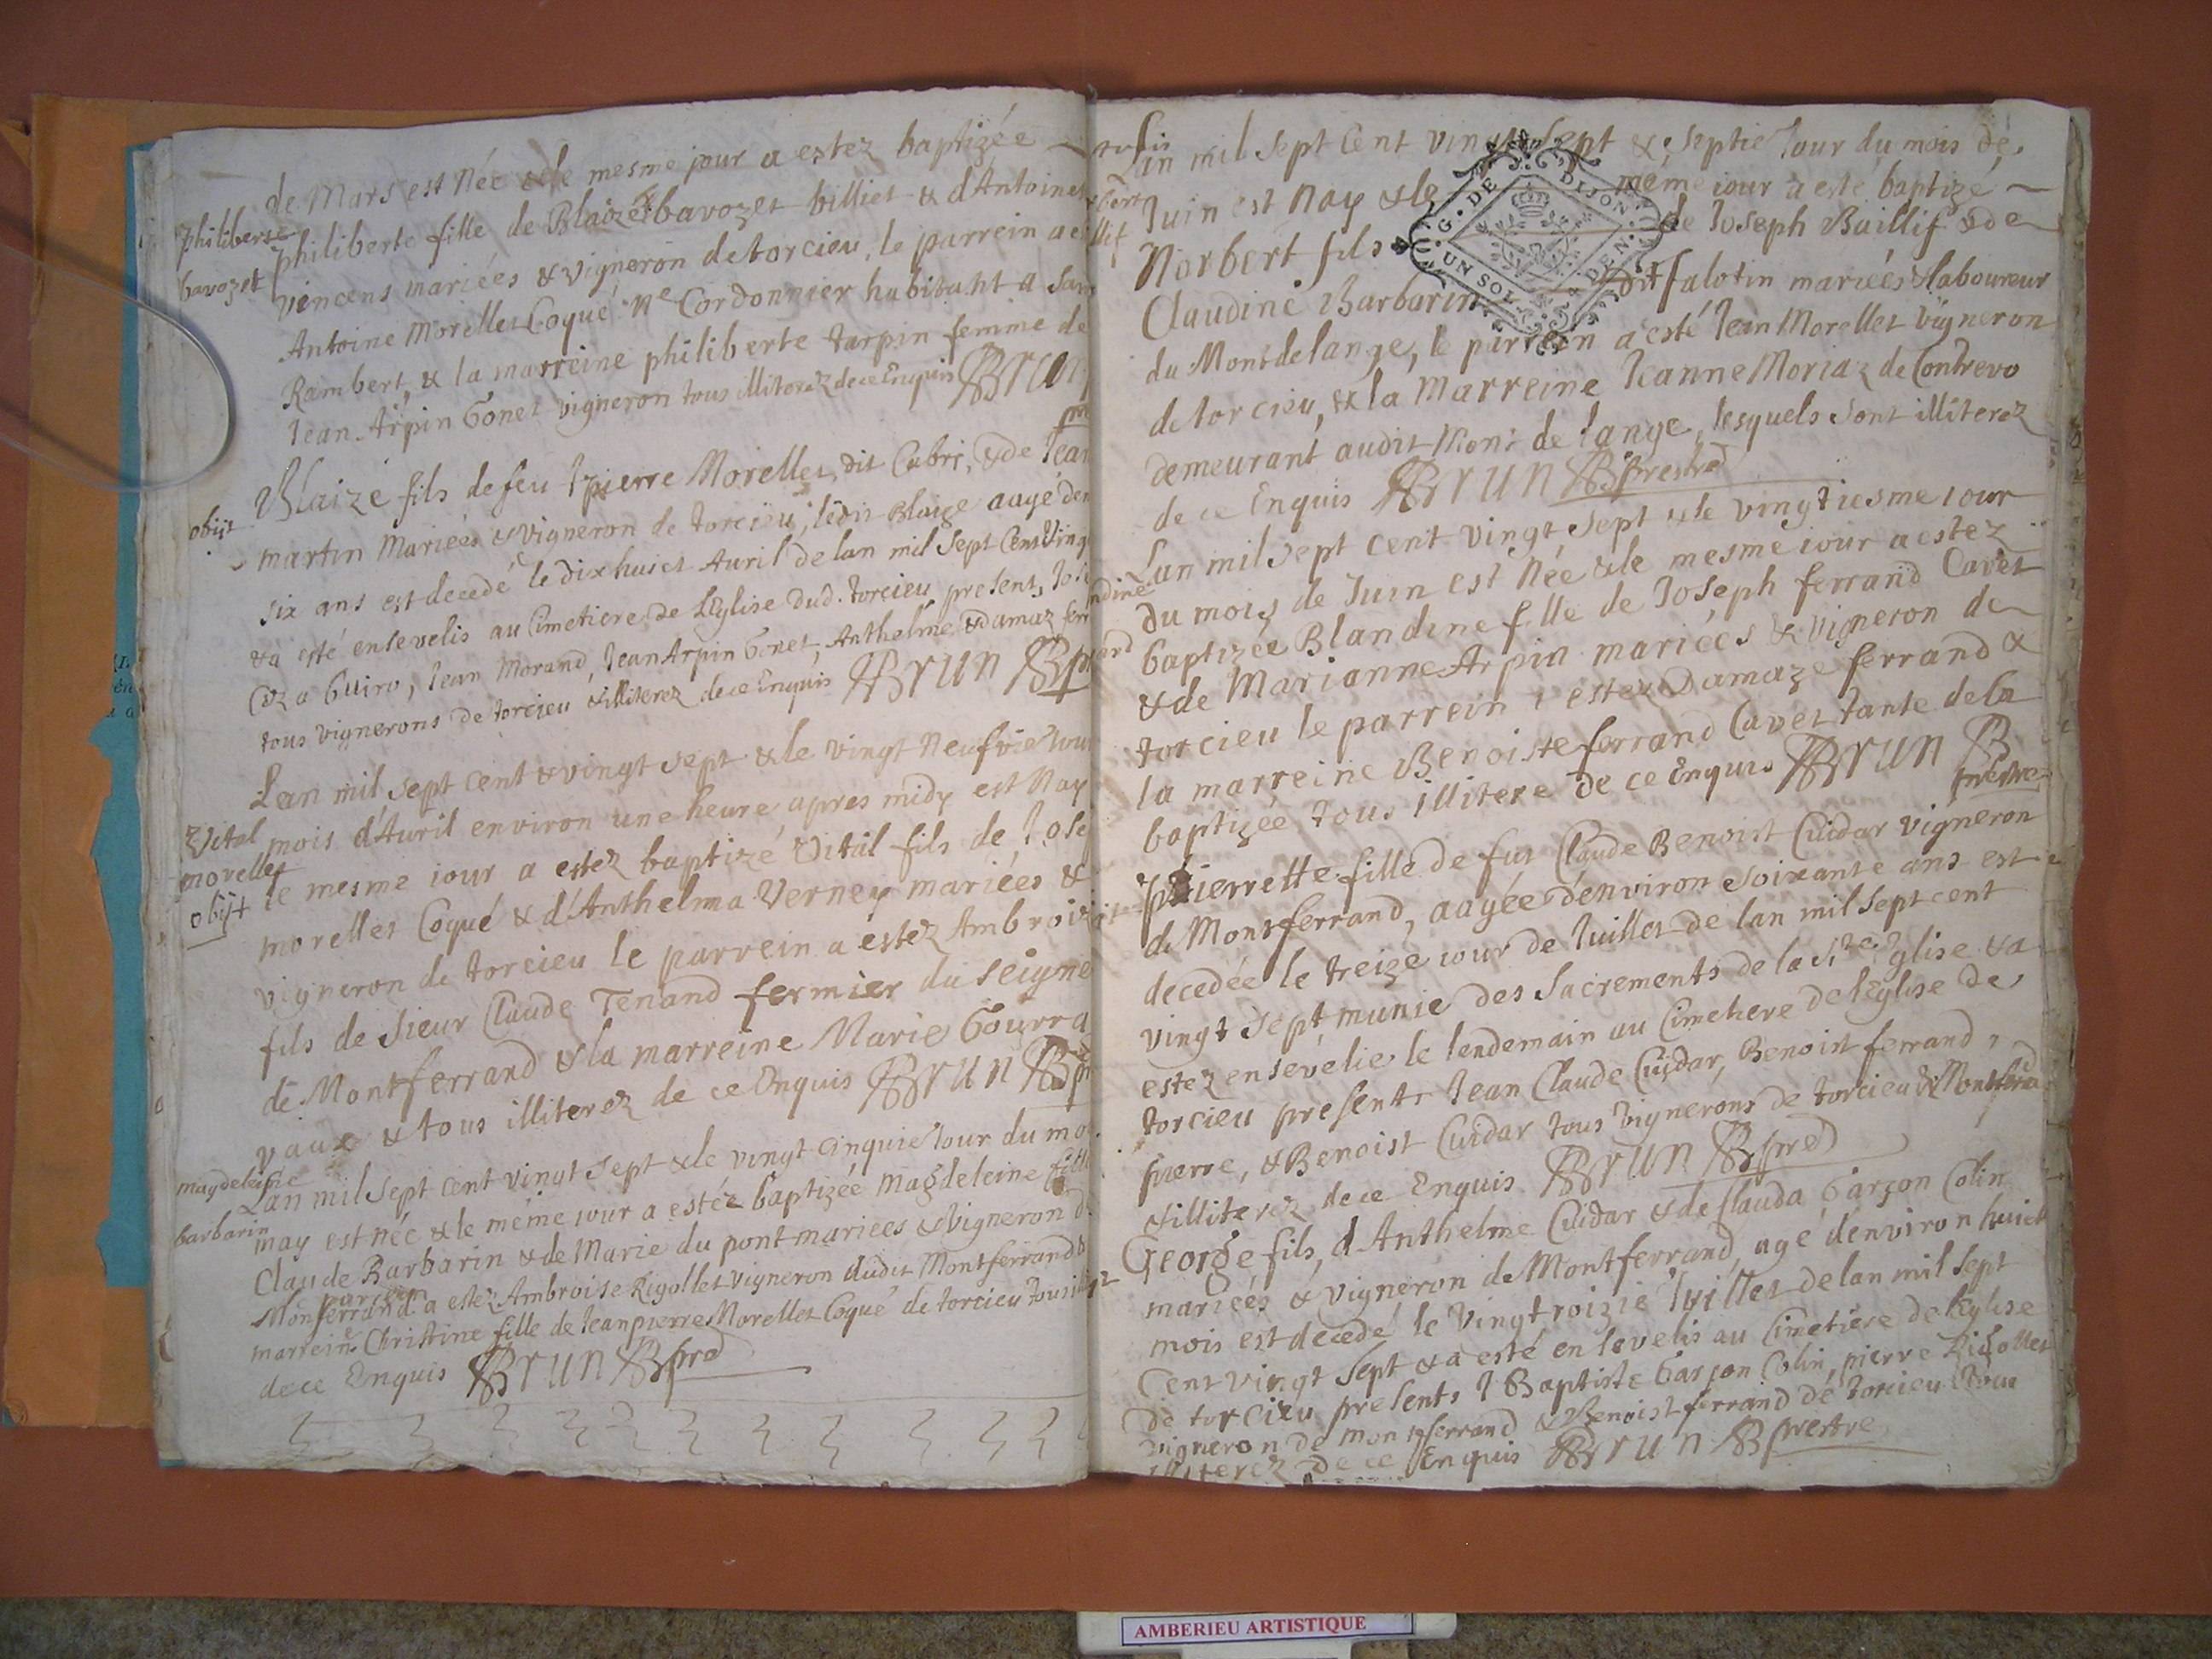 de Mars est Née & le mesme jour a estez baptizée
philiberte
philiberte fille de Blaize bavozet billiet & d'Antoine
bavozet
vincens mariées & vigneron de torcieu, le parrein a e
Antoine Morellet Coqué Me Cordonnier habitant a San
Rambert, & la marreine philiberte tarpin femme de
Jean Arpin Gonet vigneron tous illiterez de ce Enquis Brun
Blaize fils de feu pierre Morellet, dit Cabri, & de Jean
obijt
martin Mariées & vigneron de torcieu, ledit Blaize aagé den
six ans est decedé le dixhuict Auril de lan mil sept Cent Ving
& a esté ensevelis au Cimetiere de L'Eglise dud. torcieu present, Jo
Guiro, Jean Morand, Jean Arpin Gonet, Anthelme & damaz fer
tous vignerons de torcieu & illiterez de ce Enquis Brun
Lan mil sept cent & vingt sept & le vingt Neufvie Jour
Vital
mois d'Auril environ une heure apres midy est Nay
morellet
le mesme iour a estez baptizé Vital fils de Jose
obijt
morellet Coqué & d'Anthelma Verney mariées &
vigneron de torcieu le parrein a estez Ambroi
fils de sieur Claude Tenand fermier du seigne
de Montferrand & la marreine Marie Gourra
vaux & tous illiterez de ce Enquis Brun
magdeleine
Lan mil sept cent vingt sept & le vingt cinquie Jour du mo
barbarin
may est née & le méme iour a estéz baptizée Magdeleine fille
Claude Barbarin & de Marie du pont mariees & vigneron d
parrein
Monferrand a estez Ambroise Rigollet vigneron dudit Montferrand
marreine Christine fille de Jean pierre Morellet Coqué de torcieu tous
de ce Enquis Brun pre
Lan mil sept Cent vingt Sept & septie Jour du mois de
Juin est Nay & le méme iour a esté baptizé
Norbert fils de Joseph Baillif & de
Claudine Barbarin dit falotin mariées & laboureur
du Mont de lange, le parrein a esté Jean Morellet vigneron
de torcieu, & la Marreine Jeanne Moriaz de Contrevo
demeurant audit Mont de lange, lesquels sont illiterez
de ce Enquis Brun prestre
Lan mil sept cent vingt sept & le vingtiesme iour
du mois de Juin est Née & le mesme iour a estez
baptizée Blandine fille de Joseph ferrand Cavet
& de Marianne Arpin mariées & vigneron de
torcieu le parrein estez Damaze ferrand &
la marreine Benoiste ferrand Cavet tante de la
baptizée tous illitere de ce Enquis Brun
prestre
pierrette fille de fut Claude Benoist Cuidar vigneron
de Montferrand, aagée d'environ soixante ans est
decedée le treize iour de Juillet de lan mil sept cent
vingt sept munie des Sacrements de la Ste Eglise & a
estez ensevelie le lendemain au Cimetiere de l'Eglise de
torcieu presents Jean Claude Cuidar, Benoist ferrand,
pierre, & Benoist Cuidar tous vignerons de torcieu & Montferrand
& illiterez de ce Enquis Brun pre
George fils, d'Anthelme Cuidar & de Clauda Garçon Colin
mariées & vigneron de Montferrand, agé d'environ huict
mois est decedé le Vingtroizie Juillet de lan mil sept
Cent vingt sept & a esté ensevelis au Cimetiere de l'Eglise
de torcieu presents J Baptiste Garçon Colin, pierre Rigollet
vigneron de montferrand & Benoist ferrand de torcieu tous
illiterez de ce Enquis Brun prestre
G. DE DIJON
UN SOL 4 DEN.
AMBERIEU ARTISTIQUE